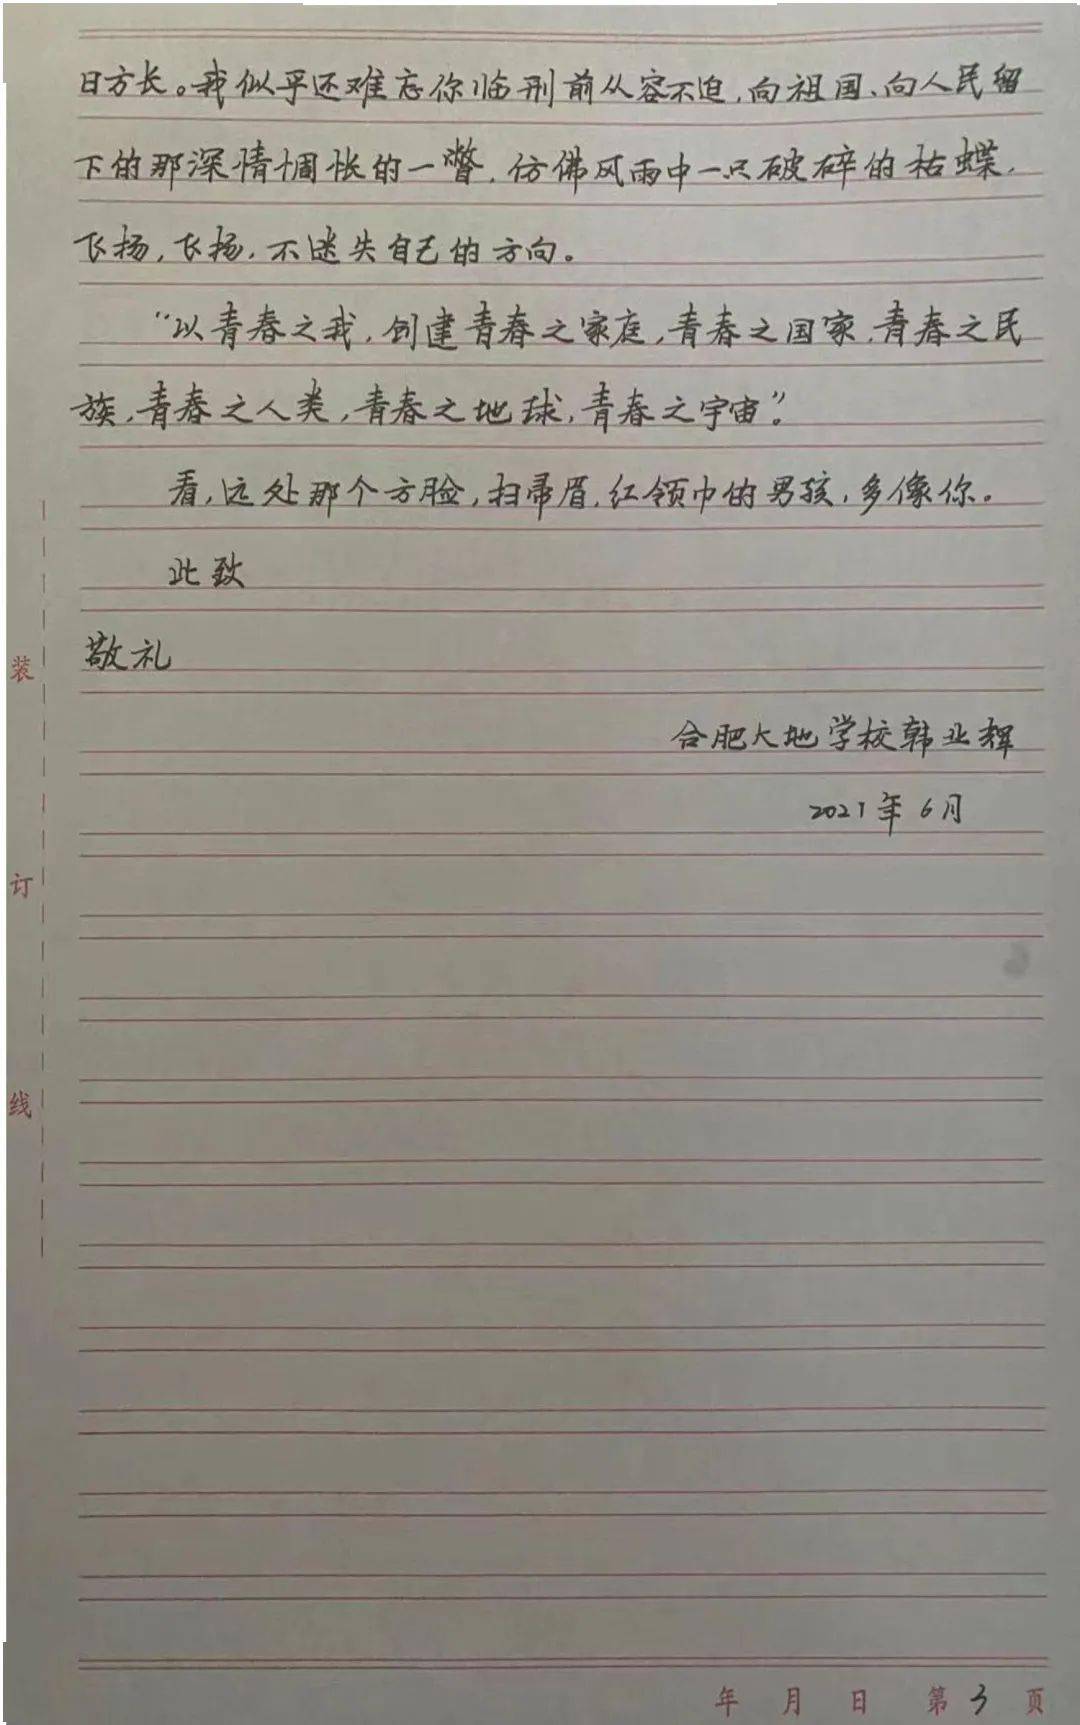 日方长。我似乎还难忘你临刑前从容不迫，向祖国、向人民留
下的那深情惆怅的一瞥，仿佛风雨中一只破碎的枯蝶，
飞扬，飞扬，不迷失自己的方向。
“以青春之我，创建青春之家庭，青春之国家，青春之民
族，青春之人类，青春之地球，青春之宇宙”。
看，远处那个方脸，扫帚眉，红领巾的男孩，多像你。
此致
敬礼
合肥大地学校韩业辉
2021年6月
装
订
线
年 月 日 第3页